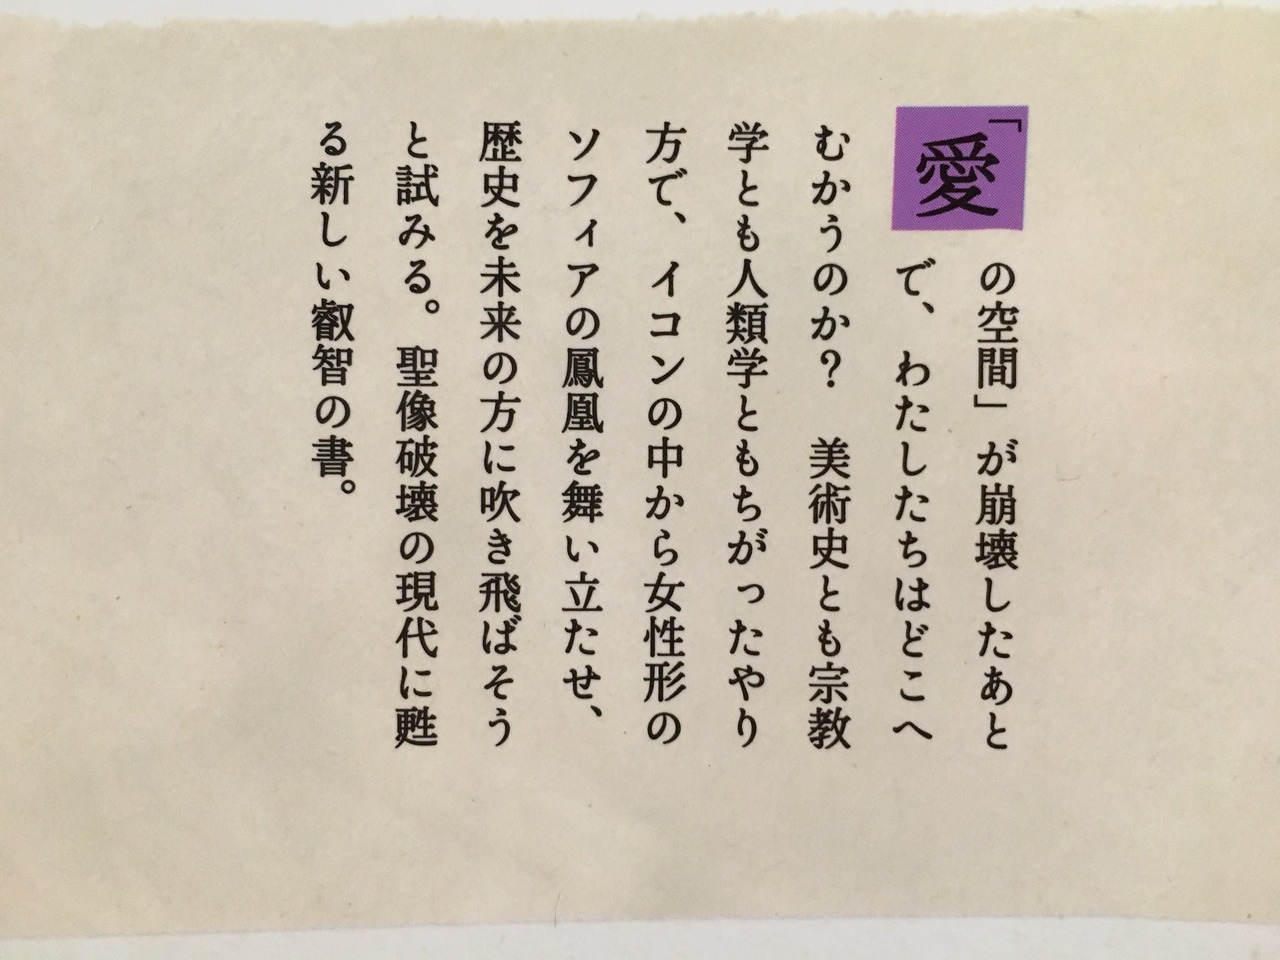 「愛の空間」が崩壊したあと
で、わたしたちはどこへ
むかうのか？　美術史とも宗教
学とも人類学ともちがったやり
方で、イコンの中から女性形の
ソフィアの鳳凰を舞い立たせ、
歴史を未来の方に吹き飛ばそう
と試みる。聖像破壊の現代に甦
る新しい叡智の書。